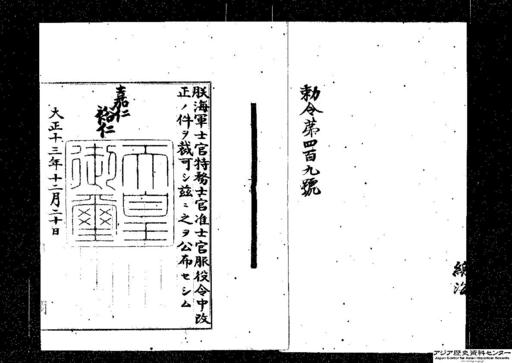 勅令第四百九號
朕海軍士官特務士官准士官服役令中改
正ノ件ヲ裁可シ玆ニ之ヲ公布セシム
嘉仁
裕仁
天皇
御璽
大正十三年十二月二十日
アジア歴史資料センター
Japan Center for Asian Historical Records